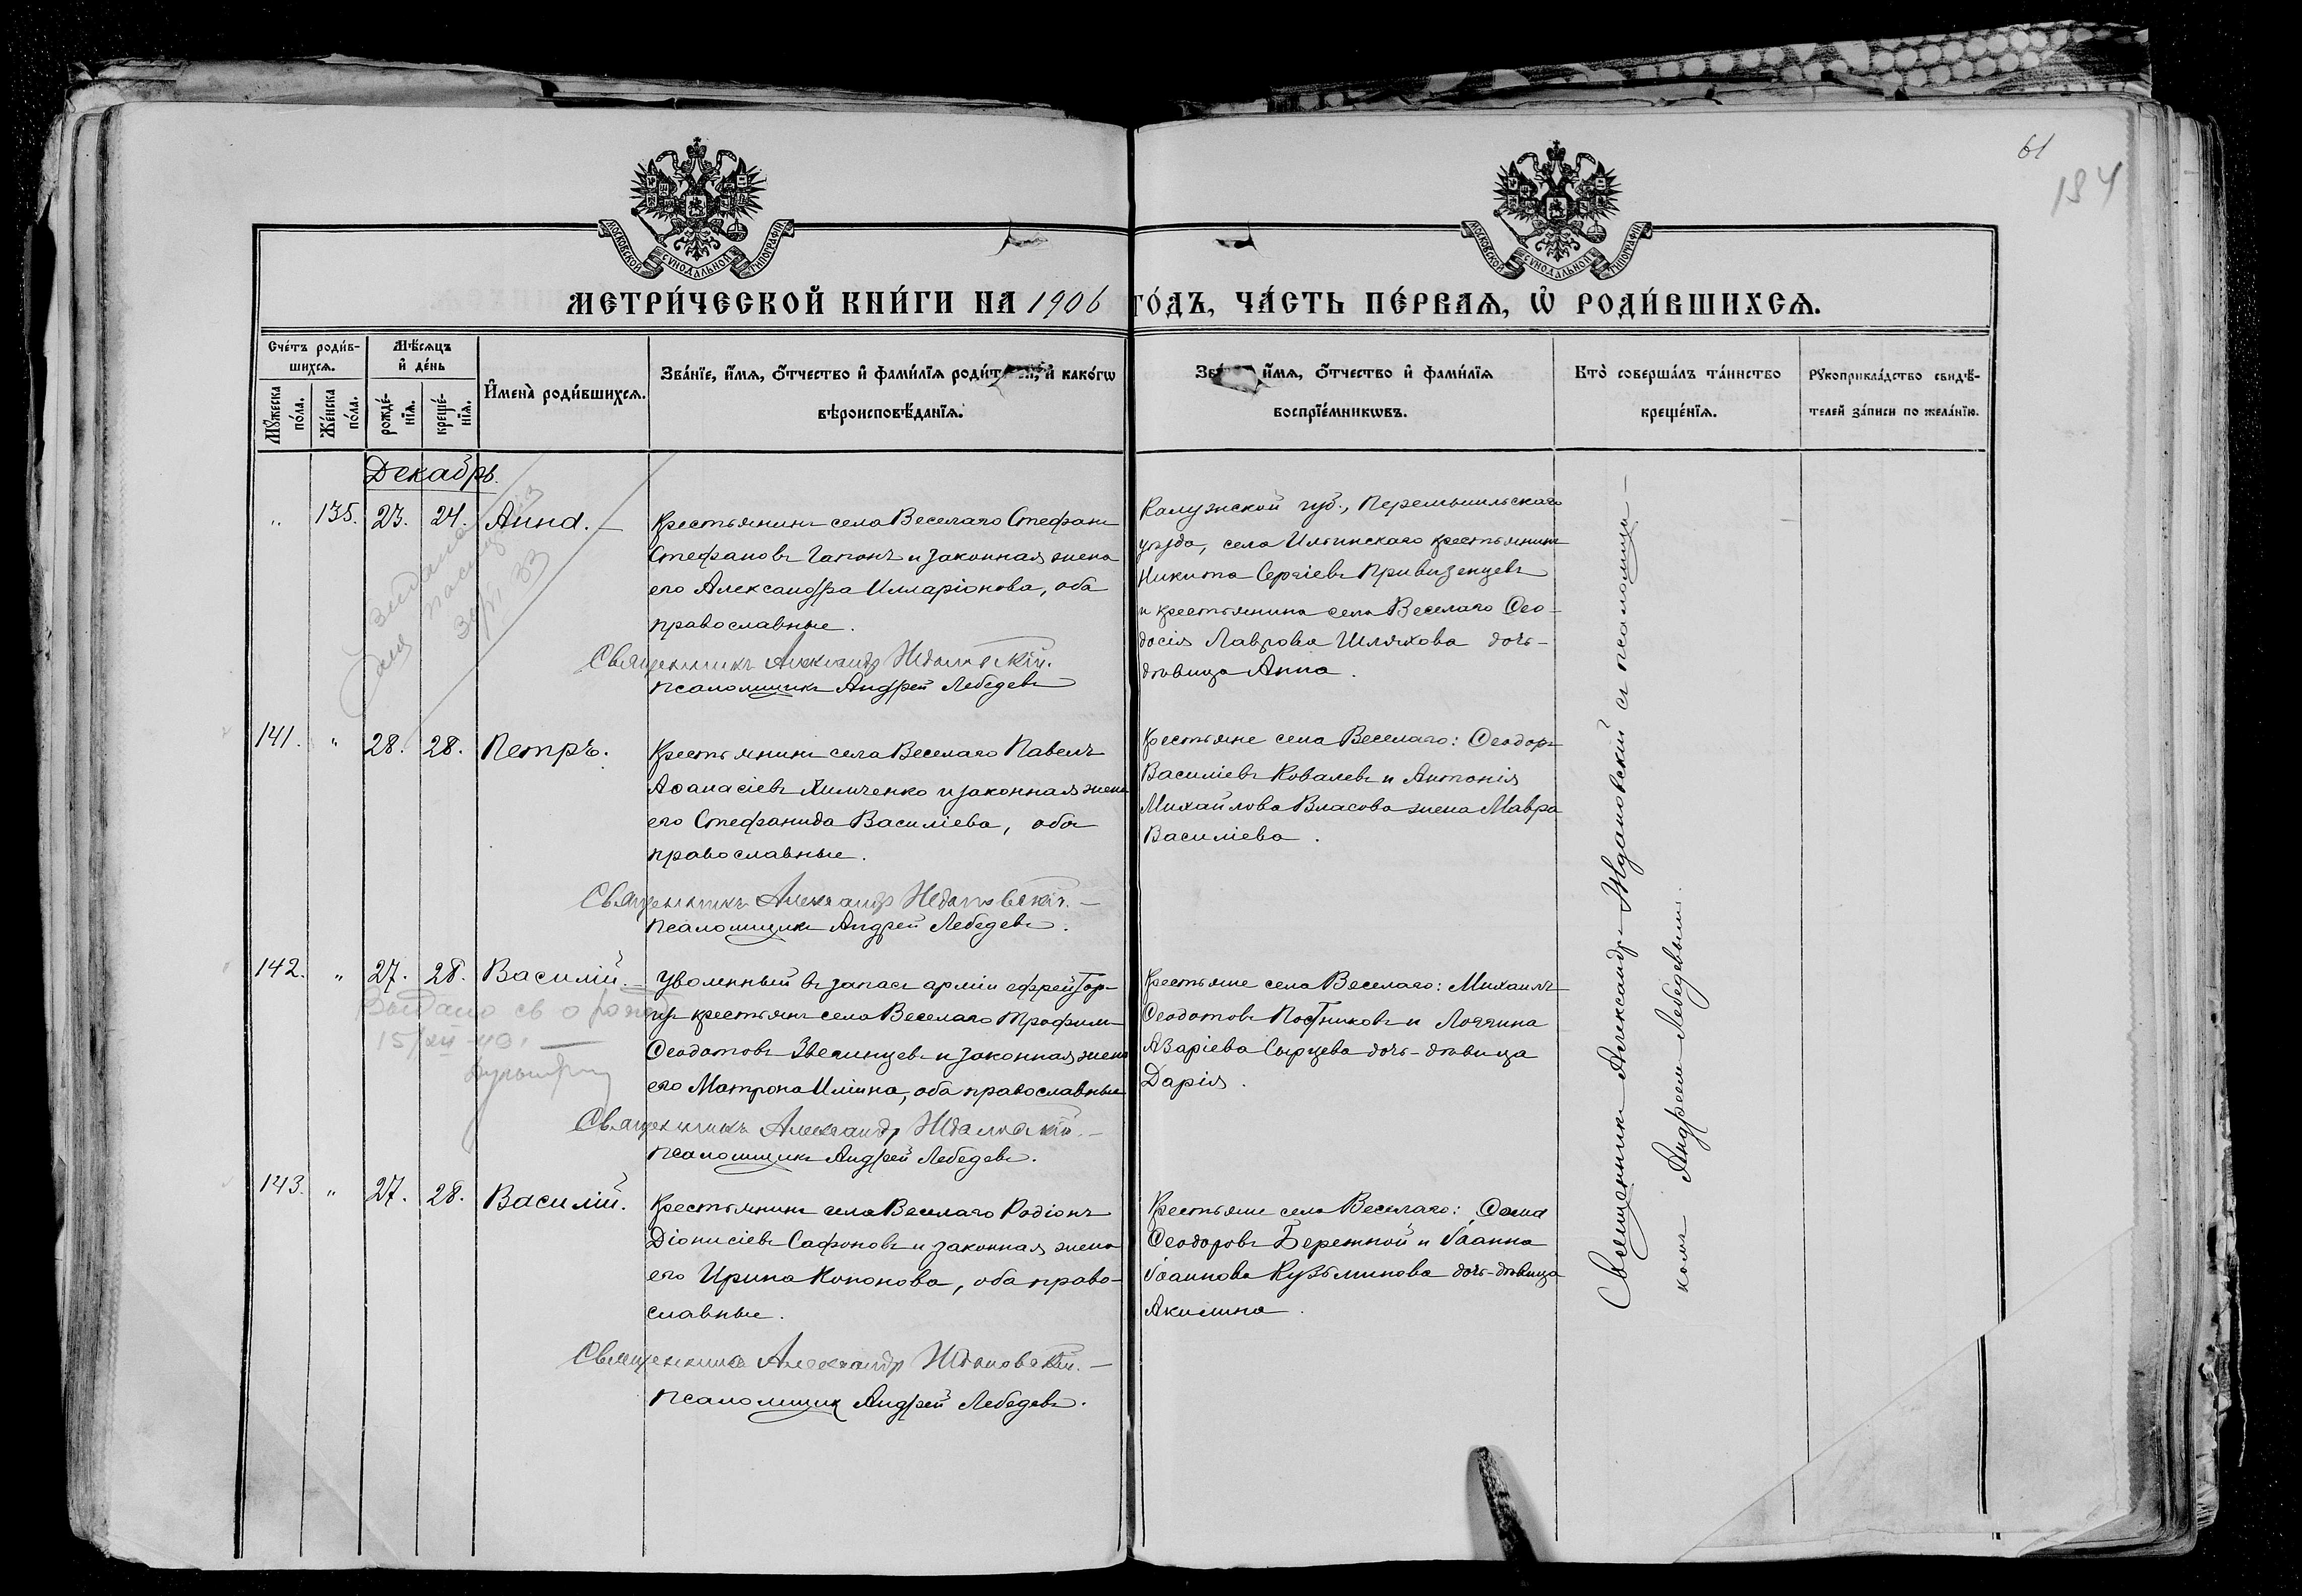 61
184
МОСКОВСКОЙ СѴНОДАЛЬНОЙ ТИПОГРАФІИ
МОСКОВСКОЙ СѴНОДАЛЬНОЙ ТИПОГРАФІИ
МЕТРИ́ЧЕСКОЙ КНИ́ГИ НА 1906 ГО́ДЪ, ЧА́СТЬ ПЕ́РВАѦ, Ѡ҆ РОДИ́ВШИХСѦ.
Сче́тъ роди́в-
шихсѧ.
Мѹ́жеска по́ла.
Же́нска по́ла.
Мѣ́сѧцъ
и҆ де́нь
рожде́-
нїѧ.
креще́-
нїѧ.
И҆мена̀ роди́вшихсѧ.
Зва́нїе, и҆́мѧ, ѻ҆́тчество и҆ фами́лїѧ роди́телей, и҆ како́гѡ
вѣроисповѣ́данїѧ.
Зва́нїе, и҆́мѧ, ѻ҆́тчество и҆ фами́лїѧ
воспрїе́мникѡвъ.
Кто̀ соверша́лъ та́инство
креще́нїѧ.
Рѹкоприкла́дство свидѣ́-
телей за́писи по жела́нїю.
Декабрь.
" 135. 23. 24. Анна. —
Крестьянинъ села Веселаго Стефанъ
Стефановъ Гапонъ и законная жена
его Александра Илларіонова, оба
православные.
Священникъ Александръ Ждановскій.
Псаломщикъ Андрей Лебедевъ
Калужской губ., Перемышльскаго
уѣзда, села Ильинскаго крестьянинъ
Никита Сергіевъ Привизенцевъ
и крестьянина села Веселаго Ѳео-
досія Лаврова Шляхова дочь-
дѣвица Анна.
141. " 28. 28. Петръ.
Крестьянинъ села Веселаго Павелъ
Аѳанасіевъ Химченко и законная жена
его Стефанида Василіева, оба
православные.
Священникъ Александръ Ждановскій. —
Псаломщикъ Андрей Лебедевъ.
Крестьяне села Веселаго: Ѳеодоръ
Василіевъ Ковалевъ и Антонія
Михайлова Власова жена Мавра
Василіева.
142. " 27. 28. Василій. —
Выдано св о рожд
15/XII-40.
Уволенный въ запасъ арміи ефрейтор-
изъ крестьянъ села Веселаго Трофимъ
Ѳеодотовъ Звегинцевъ и законная жена
его Матрона Иліина, оба православные
Священникъ Александръ Ждановскій. —
Псаломщикъ Андрей Лебедевъ.
Крестьяне села Веселаго: Михаилъ
Ѳеодотовъ Постниковъ и Логгина
Азаріева Сырцева дочь-дѣвица
Дарія.
143. " 27. 28. Василій.
Крестьянинъ села Веселаго Родіонъ
Діонисіевъ Сафоновъ и законная жена
его Ирина Кононова, оба право-
славные.
Священникъ Александръ Ждановскій. —
Псаломщикъ Андрей Лебедевъ.
Крестьяне села Веселаго: Ѳома
Ѳеодоровъ Бережной и Іоанна
Іоаннова Кузьминова дочь-дѣвица
Акилина.
Священникъ Александръ Ждановскій съ псаломщи-
комъ Андреемъ Лебедевымъ.